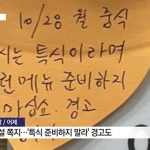 10/28 월 중식
시는 특식이라며
런 메뉴 준비하지
마십쇼. 경고
/ 어제
설 쪽지…'특식 준비하지 말라' 경고도